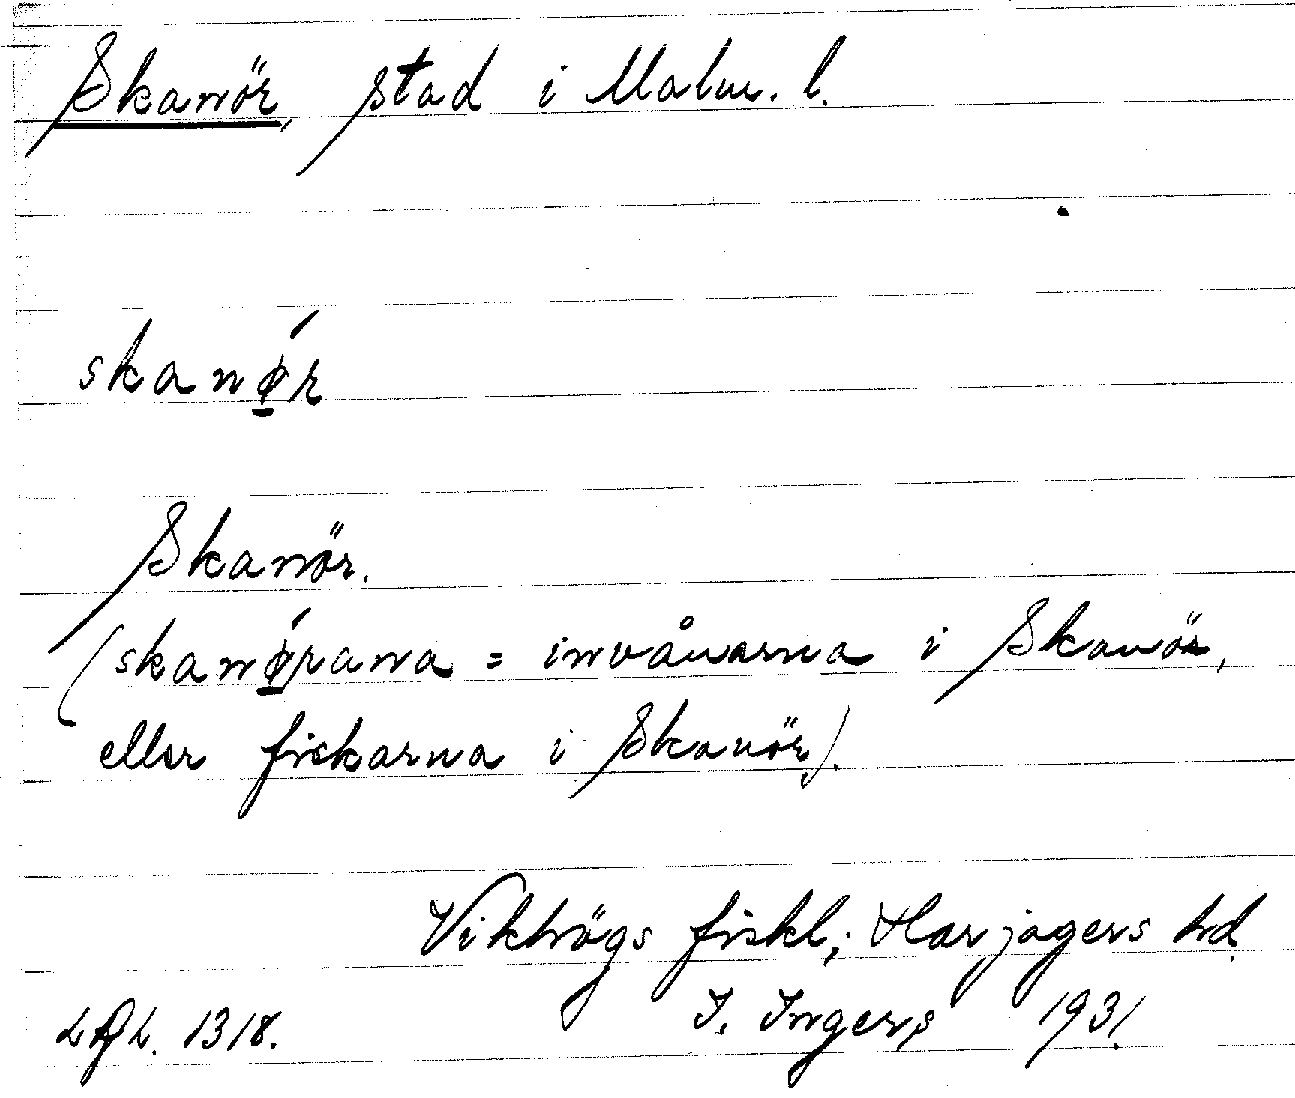 Skanör, stad i Malm. l.
skanǿ̱r
Skanör.
(skanǿ̱rana = invånarna i Skanör,
eller fiskarna i Skanör).
Vikhögs fiskl., Harjagers hd.
I. Ingers 1931.
LAL. 1318.